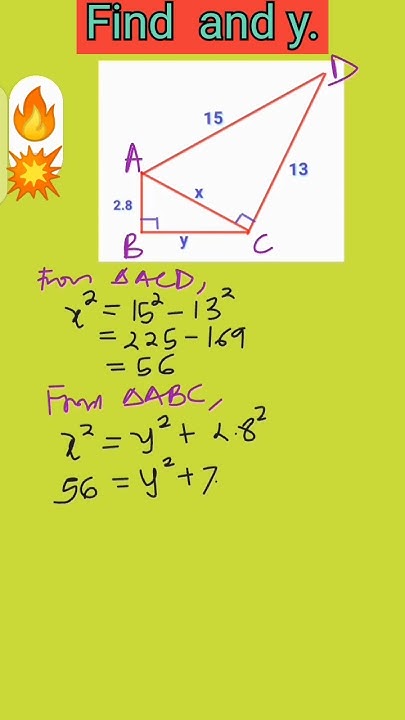 Find and y.
D
15
A
x
13
2.8
B
y
C
From ΔACD,
x² = 15² - 13²
= 225 - 169
= 56
From ΔABC,
x² = y² + 2.8²
56 = y² + 7.